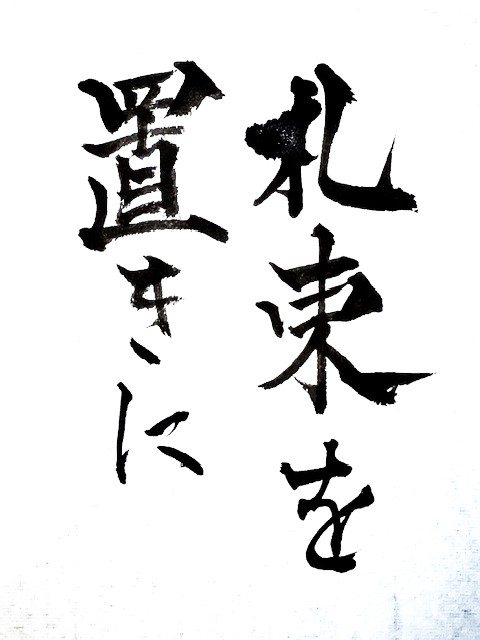 札束を
置きに